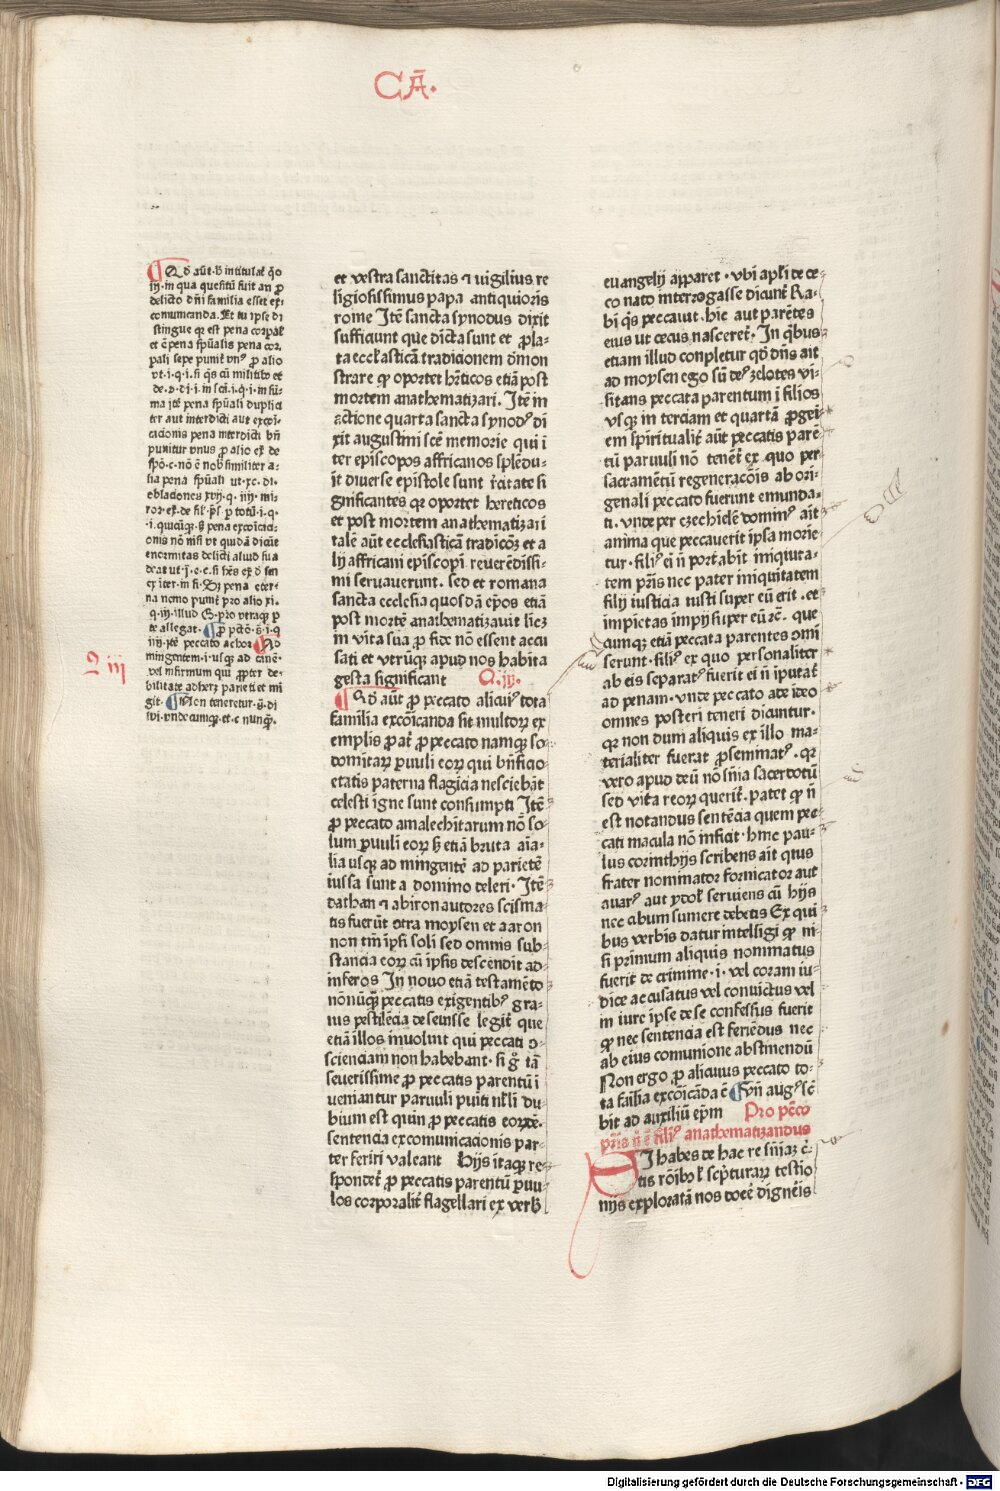 CĀ.
Q̄ iij
¶ Qd aūt ħ intitulat̄ q̄o
iij·in qua quesitū fuit an ꝓ
delicto dn̄i familia esset ex̄
cōmunicanda. Et tu ip̄e di
stingue ꝙ est pena corꝑal̄
et ē pena sp̄ualis pena cor
pali sepe punit̄ vn⁹ ꝓ alio
ma itē pena sp̄uali duplici
ter aut interdicti aut excōi
cacionis pena interdicti bn̄
punitur vnus ꝓ alio
enormitas delicti aliud sua
na nemo punit̄ pro alio xi.
te allegat·
mingentem·i·usqꝫ ad canē·
vel infirmum qui ꝓpter de
bilitate adheret parieti et mī
git· ¶ Non teneretur·
et vestra sanctitas ⁊ uigilius re
ligiosissimus papa antiquioris
rome Itē sancta synodus dixit
sufficiunt que dicta sunt et ꝓla⸗
ta ecclesiasticā tradicionem dēmon
strare ꝙ oportet hr̄ticos etiā post
mortem anathematizari. Itē in
actione quarta sancta synod⁹ di
xit augustini scē memorie qui ī
ter episcopos affricanos splēdu⸗
it diuerse epistole sunt r̄citate si
gnificantes qꝛ oportet hereticos
et post mortem anathematizari
talē aūt ecclesiasticā tradicōꝫ et a
lij affricani episcopi reuerēdissi⸗
mi seruauerunt. sed et romana
sancta ecclesia quosdā ep̄os etiā
post mortē anathematizauit licꝫ
in vita sua ꝓ fide nō essent accu
sati et vtrūqꝫ apud nos habita
gesta significant Q. iij.
¶ Qd aūt ꝓ peccato alicui⁹ tota
familia excōicanda sit multoꝝ ex
emplis ꝓbat̄ ꝓ peccato namqꝫ so
domitaꝝ ꝑuuli eoꝝ qui bn̄ficio
etatis paterna flagicia nesciebāt
celesti igne sunt consumpti Itē
ꝓ peccato amalechitarum nō so⸗
lum ꝑuuli eoꝝ sꝫ etiā bruta aīa⸗
lia usqꝫ ad mingentē ad parietē
iussa sunt a domino deleri· Itē
dathan ⁊ abiron autores scisma⸗
tis fuerūt ꝯtra moysen et aaron
non tm̄ ip̄si soli sed omnis sub⸗
stancia eoꝝ cū ip̄sis descendit ad
inferos In nouo etiā testamēto
nōnūqꝫ peccatis exigentib⁹ gra⸗
uis pestilēcia deseuisse legit̄ que
etiā illos inuoluit qui peccati ꝯ⸗
scienciam non habebant· si gͦ tā
seuerissime ꝓ peccatis parentū ī
ueniantur paruuli puīti nl̄li du⸗
bium est quin ꝓ peccatis eorūdē·
sentencia excomunicacionis par⸗
ter feriri valeant Hijs itaqꝫ re⸗
spondet̄ ꝓ peccatis parentū ꝑuu⸗
los corporalit̄ flagellari ex verb̄
euangelij apparet · vbi apl̄i de ce⸗
co nato interrogasse dicunt̄ Ra⸗
bi q̄s peccauit· hic aut parētes
eius ut cecus nasceret̄· In q̄bus
etiam illud conpletur qd̄ dn̄s ait
ad moysen ego sū de⁹ zelotes vi⸗
sitans peccata parentum ī filios
vsqꝫ in terciam et quartā ꝓgei⸗
em spiritualit̄ aūt peccatis parē
tū paruuli nō tenēt̄ ex quo per⸗
sacramētū regeneracōis ab ori⸗
genali peccato fuerunt emunda⸗
ti· vnde per ezechielē domin⁹ ait
anima que peccauerit ip̄sa morie
tur·fili⁹ ei n̄ portabit iniquita⸗
tem pr̄is nec pater iniquitatem
filij iusticia iusti super eū erit·et
impietas impij super eū ꝛc̄· que
cumqꝫ etiā peccata parentes omī
serunt·fili⁹ ex quo personaliter
ab eis separat⁹ fuerit ei n̄ īputat̄
ad penam·vnde peccato ade ideo
omnes posteri teneri dicuntur·
qꝛ non dum aliquis ex illo ma⸗
terialiter fuerat ꝓseminat⁹·qꝛ
vero apud deū nō sn̄ia sacerdotū
sed vita reoꝝ querit̄·patet ꝙ n̄
est notandus sentēcia quem pec⸗
cati macula nō inficit·hinc pau⸗
lus corinthijs scribens ait qtus
frater nominator fornicator aut
auar⁹ aut ydol̄ seruiens cū hijs
nec cibum sumere debetis Ex qui
bus verbis datur intelligi ꝙ ni⸗
si primum aliquis nominatus
fuerit de crimine·i·vel coram iu⸗
dice accusatus vel conuictus vel
in iure ip̄se de se confessus fuerit
ꝙ nec sentencia est feriēdus nec
ab eius comunione abstinendū
Non ergo ꝓ alicuius peccato to⸗
ta familia excōicāda ē ¶ Vn̄ aug⁹ sc̄
bit ad auxiliū ep̄m Pro pc̄co
pr̄is n̄ ē fili⁹ anathematizandus
SI habes de hac re sn̄iaꝫ c̄⸗
tis rōib⁹ l̄ sc̄pturaꝝ testīo
nijs exploratā nos docē dignēis
Digitalisierung gefördert durch die Deutsche Forschungsgemeinschaft - DFG